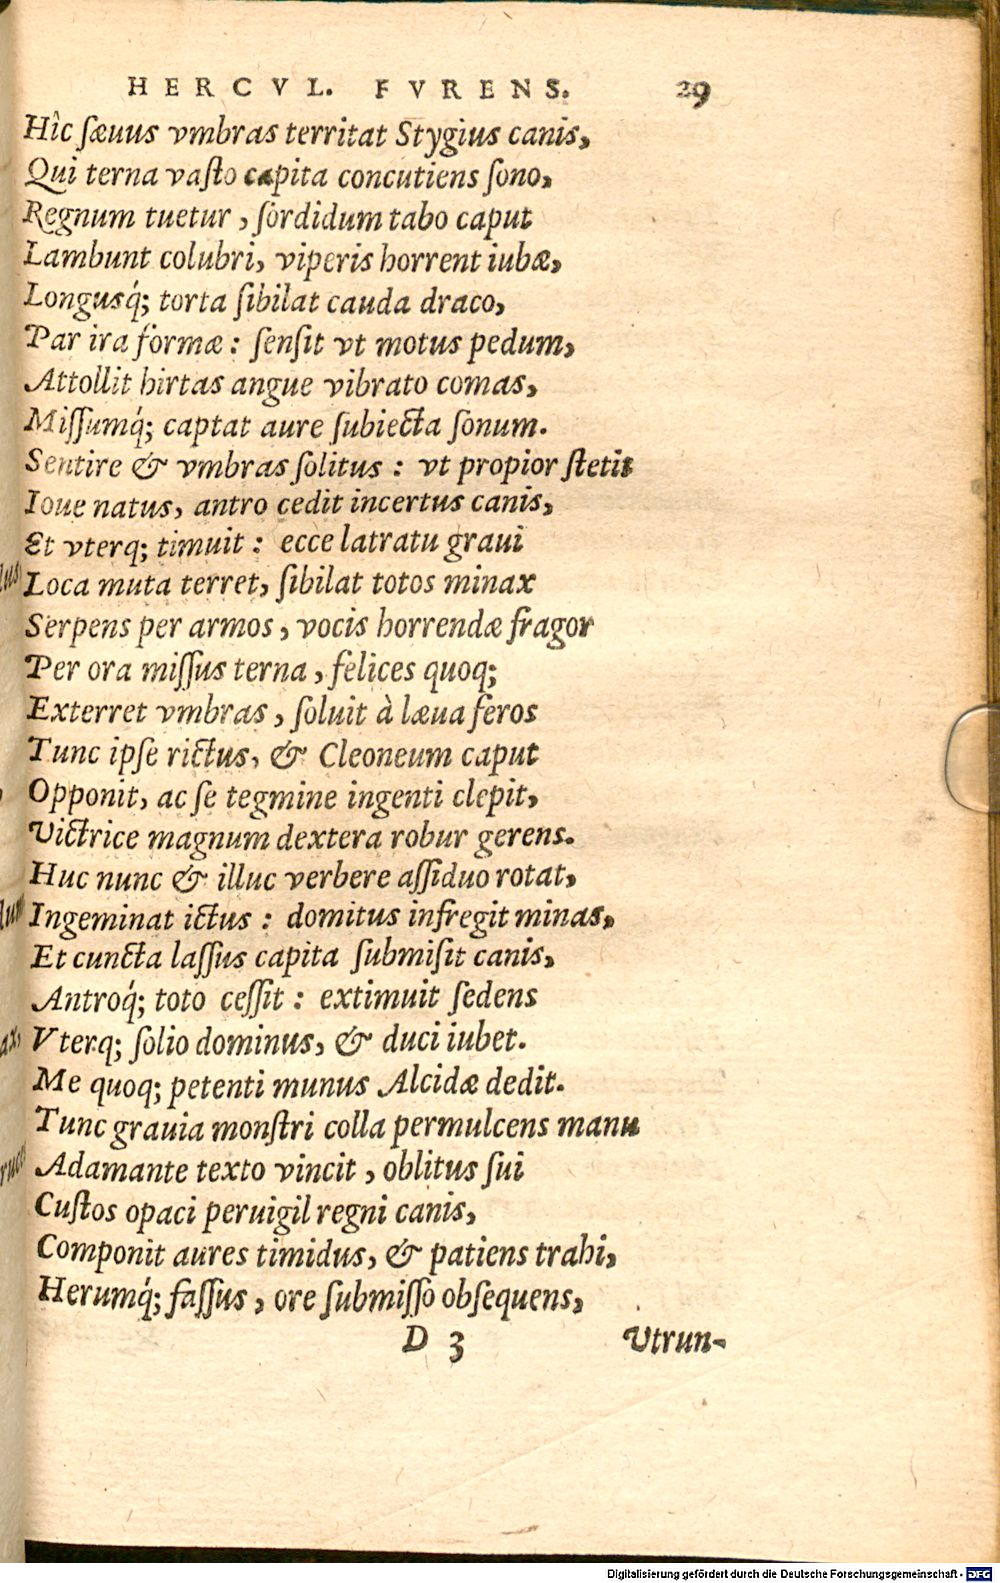 HERCVL. FVRENS. 29
Hîc ſæuus vmbras territat Stygius canis,
Qui terna vaſto capita concutiens ſono,
Regnum tuetur, ſordidum tabo caput
Lambunt colubri, viperis horrent iubæ,
Longusq́; torta ſibilat cauda draco,
Par ira formæ: ſenſit vt motus pedum,
Attollit hirtas angue vibrato comas,
Miſſumq́; captat aure ſubiecta ſonum.
Sentire & vmbras ſolitus: vt propior ſtetit
Ioue natus, antro cedit incertus canis,
Et vterq; timuit: ecce latratu graui
Loca muta terret, ſibilat totos minax
Serpens per armos, vocis horrendæ fragor
Per ora miſſus terna, felices quoq;
Exterret vmbras, ſoluit à læua feros
Tunc ipſe rictus, & Cleoneum caput
Opponit, ac ſe tegmine ingenti clepit,
Victrice magnum dextera robur gerens.
Huc nunc & illuc verbere aſſiduo rotat,
Ingeminat ictus: domitus infregit minas,
Et cuncta laſſus capita ſubmiſit canis,
Antroq́; toto ceſſit: extimuit ſedens
Vterq; ſolio dominus, & duci iubet.
Me quoq; petenti munus Alcidæ dedit.
Tunc grauia monſtri colla permulcens manu
Adamante texto vincit, oblitus ſui
Cuſtos opaci peruigil regni canis,
Componit aures timidus, & patiens trahi,
Herumq́; faſſus, ore ſubmiſſo obſequens,
D 3 Vtrun-
Digitalisierung gefördert durch die Deutsche Forschungsgemeinschaft - DFG